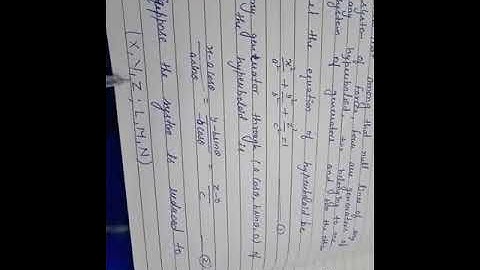 among that null lines of any
system of forces, four are generators of
any hyperboloid, two belonging to one
system of generators and two the other
let the equation of hyperboloid be
x²/a² + y²/b² + z²/c² = 1 ①
any generator through (a cosθ, b sinθ, 0) of
the hyperboloid is
x - a cosθ / a sinθ = y - b sinθ / -b cosθ = z - 0 / c ②
suppose the system is reduced to
(X, Y, Z; L, M, N)